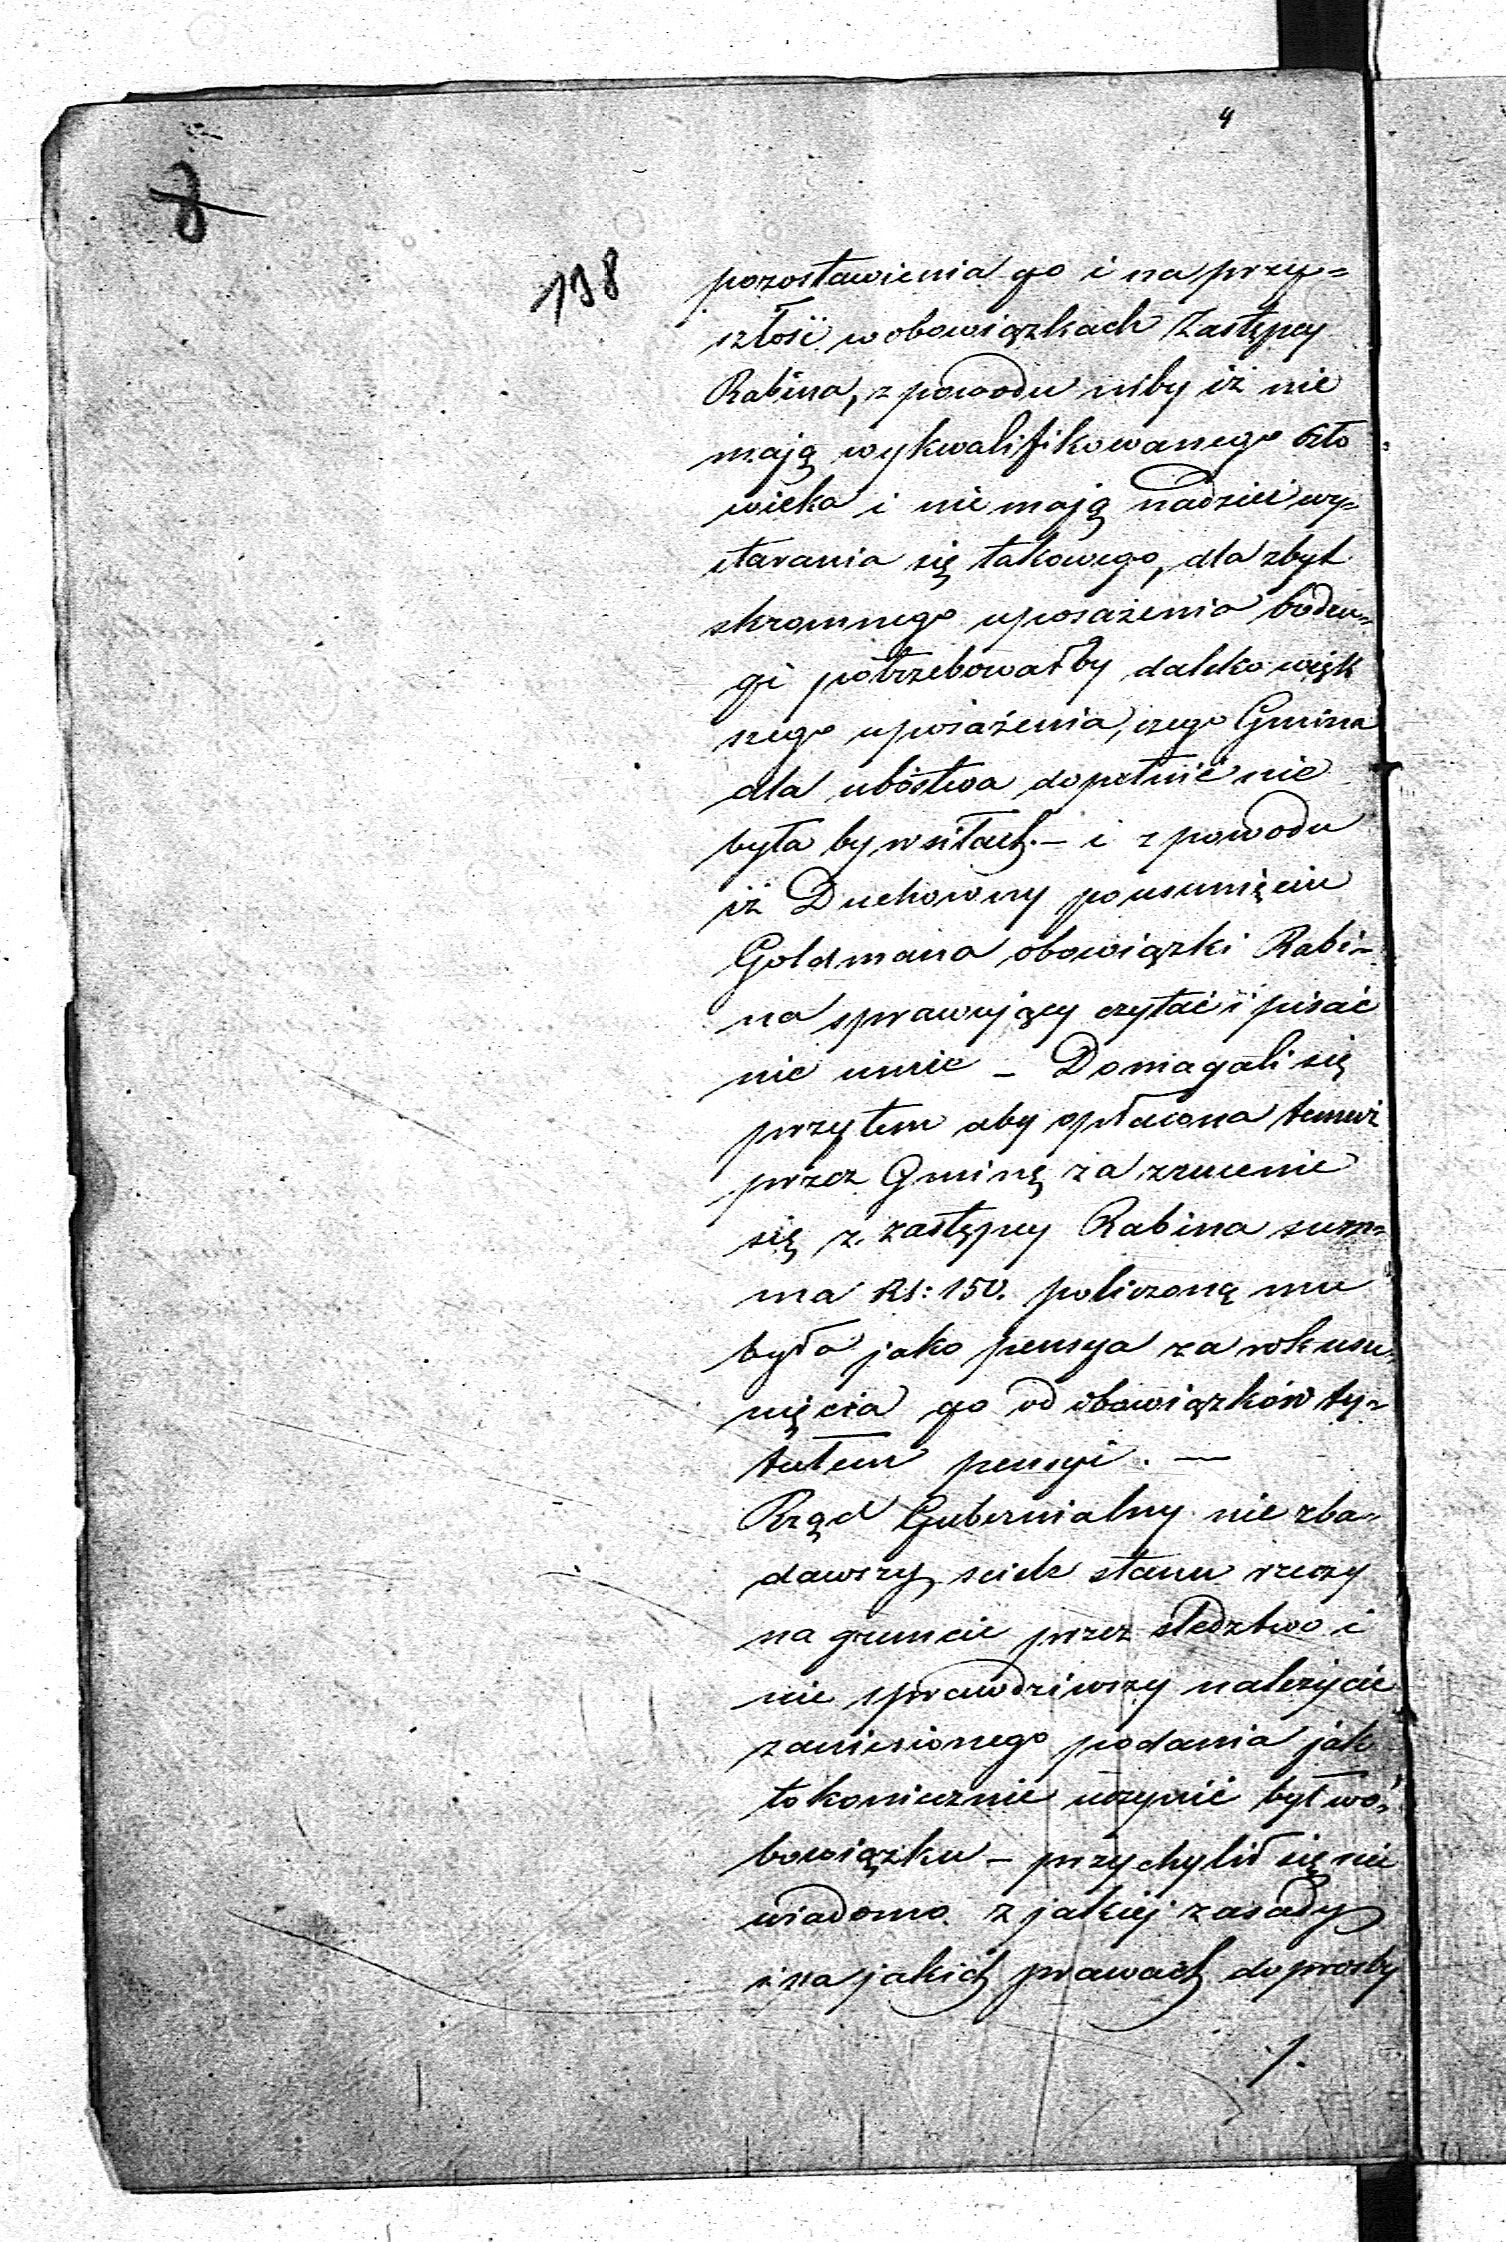 4
8
198
pozostawienia go i na przy=
szłość w obowiązkach Zastępcy
Rabina, z powodu niby iż nie
mają wykwalifikowanego czło
wieka i nie mają nadziei wy=
starania się takowego, dla zbyt
skromnego uposażenia bo dru=
gi potrzebowałby daleko więk
szego uposażenia, czego Gmina
dla ubóstwa dopełnić nie
była by w siłach. – i z powodu
iż Duchowny po usunięciu
Goldmana obowiązki Rabi-
na sprawujący czytać i pisać
nie umie – Domagali się
przytem aby opłacona temuż
przez Gminę za zrzucenie
się z zastępcy Rabina sum=
ma Rs: 150. policzoną mu
była jako pensya za rok usu=
nięcia go od obowiązków ty=
tułem pensyi. —
Rząd Gubernialny nie zba=
dawszy stanu rzeczy
na gruncie przez śledztwo i
nie sprawdziwszy należycie
zaniesionego podania jak
to koniecznie uczynić był w o=
bowiązku – przychylił się nie
wiadomo z jakiej zasady
i na jakich prawach do prośby
./.